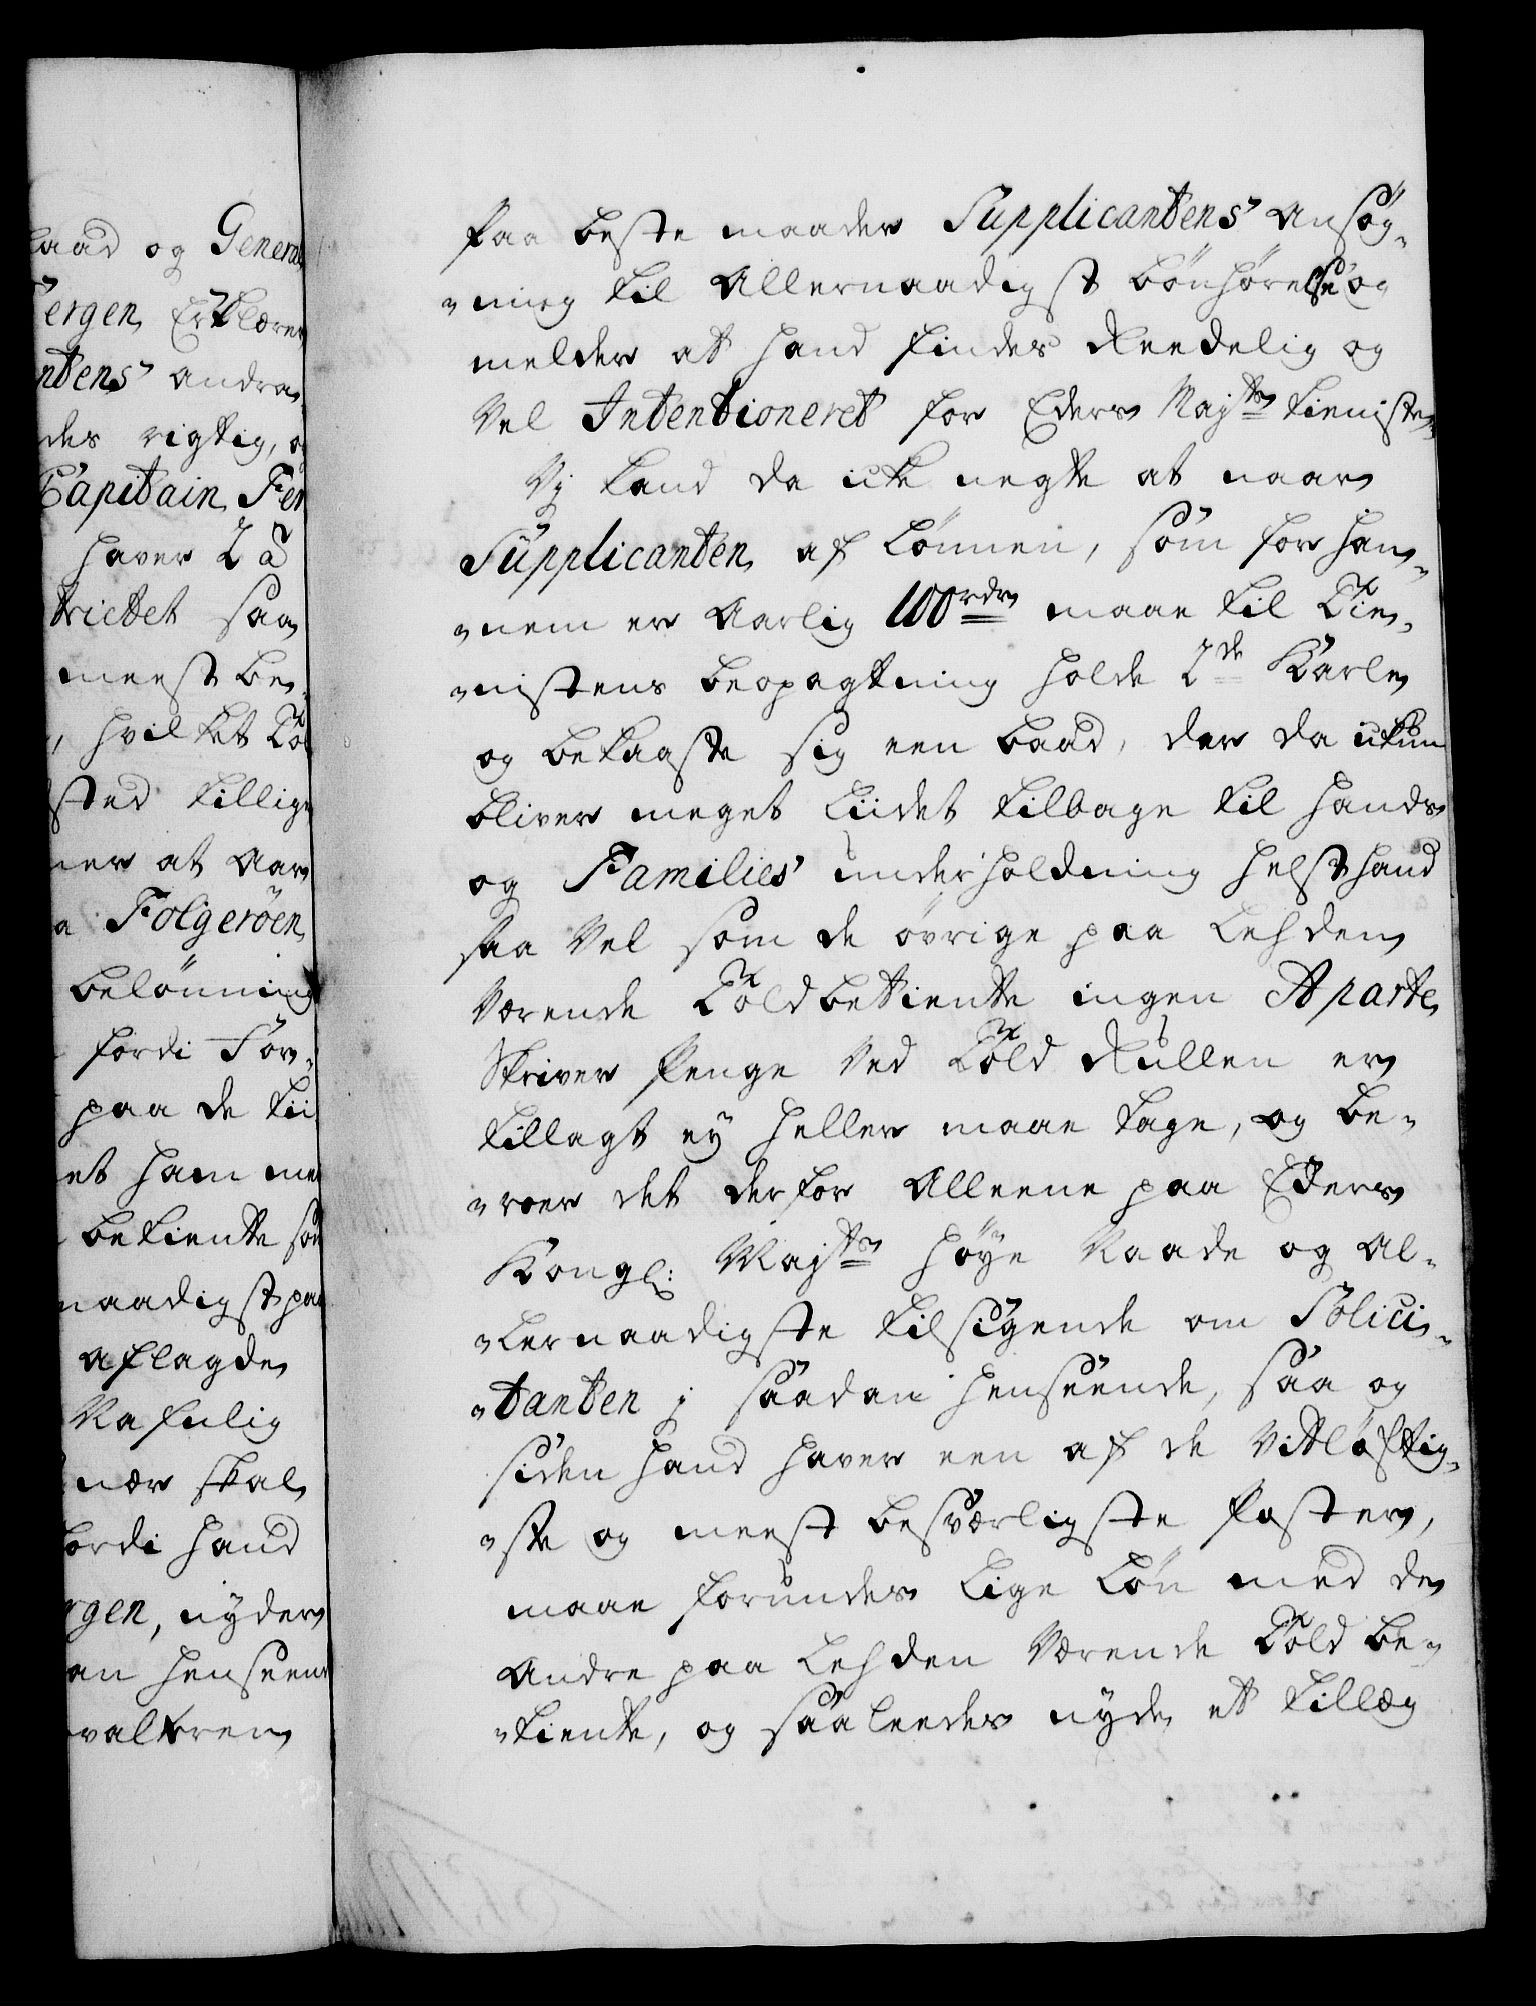 laad og General
ergen, Erklærer
ntens andra-
des rigtig, o
Capitain Fer
haver 2 à
trictet saa
meest be-
, hvilket To
sted tillige
ner at Aar
a Folgerøen,
belønning
fordi Tør-
paa de tii
et ham me
betiente so
naadigst paa
aflagde
Nafnlig
nær skal
fordi hand
rgen, nyder
an henseend
valteren
Paa beste maader Supplicantens ansøg-
-ning til Allernaadigst bønhørelse og
melder at hand findes Reedelig og
Vel Intentioneret for Eders Majts tieniste,
Vj kand da icke negte at naar
Supplicanten, af Lønnen, som for han-
-nem er Aarlig 100 rdr maae til Tie-
-nistens beopagtning holde 2de Karle
og bekaaste sig een baad, der da ickun
bliver meget liidet tilbage til hands
og Families underholdning helst hand
saa Vel som de øvrige paa Lehden
Værende Toldbetiente ingen Aparte
Skriver Penge Ved Told Rullen er
tillagt ey heller maae tage, og be-
-roer det derfor Alleene paa Eders
Kongl: Majts høye Naade og Al-
-lernaadigste tilsigende om Solici-
-tanten j saadan henseende, saa og
siden hand haver een af de Vitløftig-
-ste og meest besværligste Poster,
maae forundes Lige Løn med de
Andre paa Lehden Værende Told be-
-tiente, og saaleedes nyde et tillæg